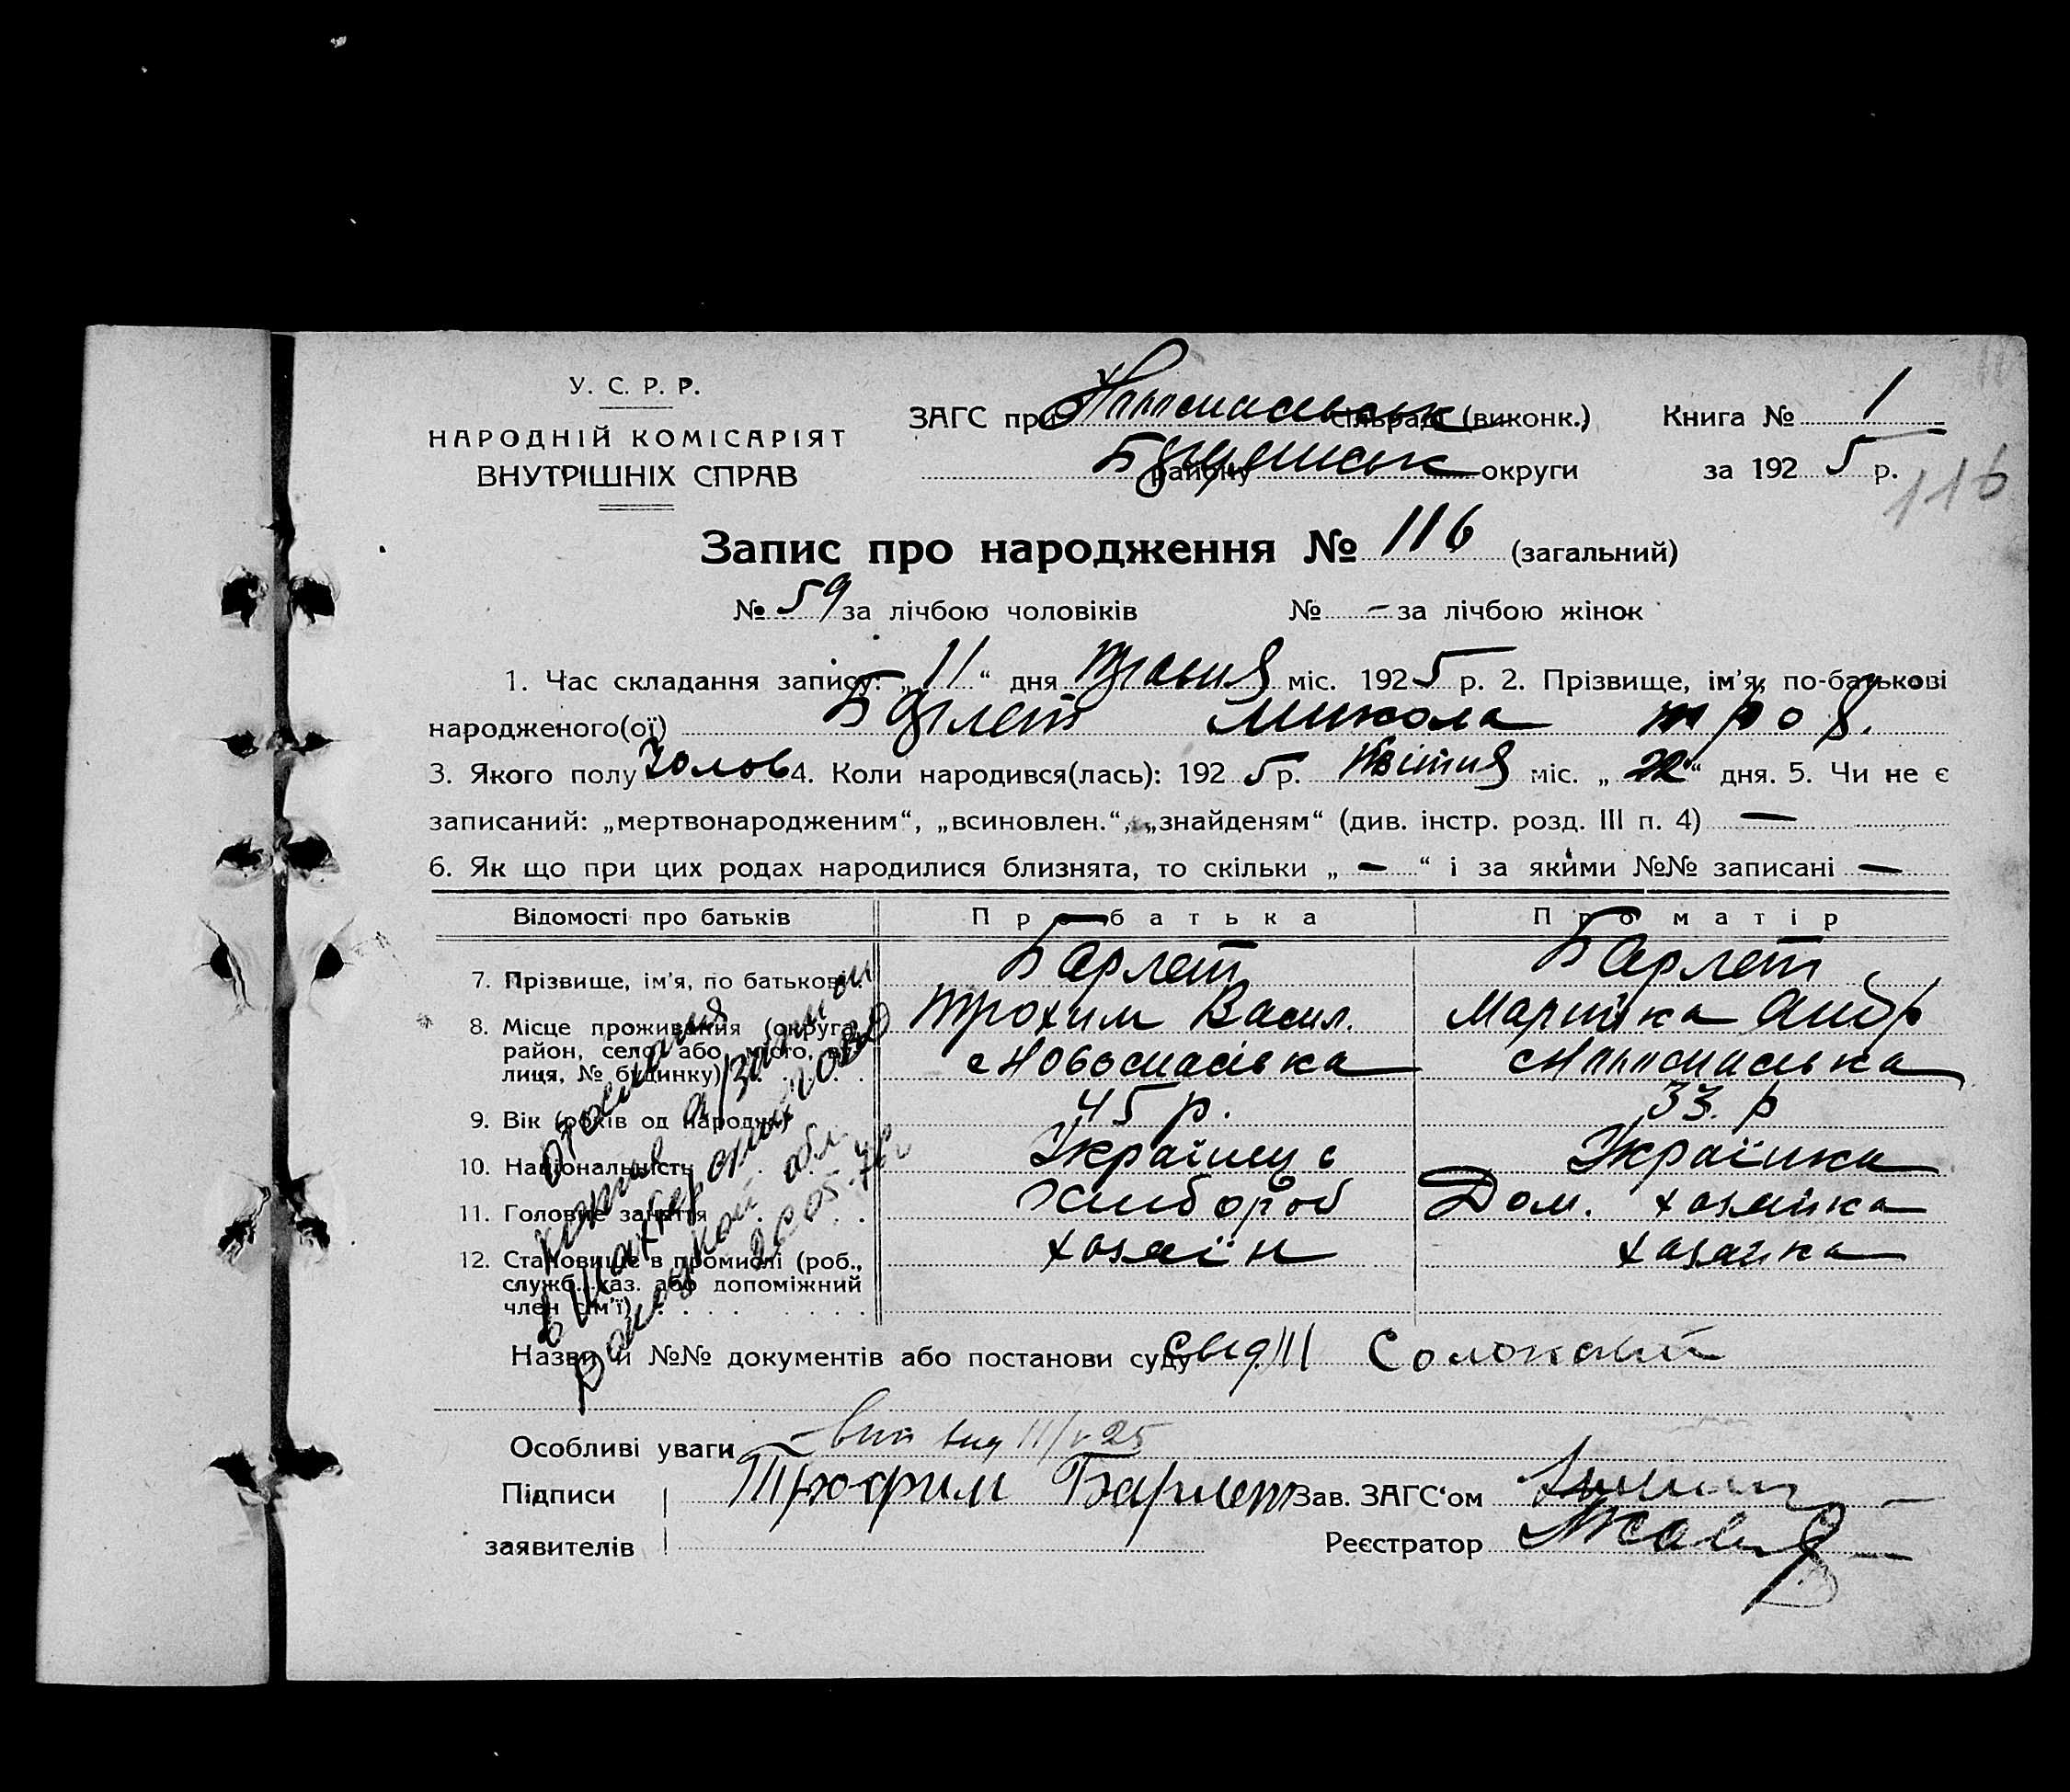 У. С. Р. Р.
НАРОДНІЙ КОМІСАРІЯТ
ВНУТРІШНІХ СПРАВ
ЗАГС при сільраді (виконк.)
району округи
Книга № 1
за 192 5 р.
116
Запис про народження № 116 (загальний)
№ 59 за лічбою чоловіків № – за лічбою жінок
1. Час складання запису: „ 11 “ дня травня міс. 192 5 р. 2. Прізвище, ім'я, по-батькові
народженого(ої) Барлет Микола Троф.
3. Якого полу Чолов 4. Коли народився(лась): 192 5 р. Квітня міс. „ 22 “ дня. 5. Чи не є
записаний: „мертвонародженим“, „всиновлен.“, „знайденям“ (див. інстр. розд. III п. 4) —
6. Як що при цих родах народилися близнята, то скільки „ — “ і за якими №№ записані —
Відомості про батьків Про батька Про матір
7. Прізвище, ім'я, по батькові. Барлет Барлет
8. Місце проживання (округа, Трохим Васил. Марийка Андр
район, село або місто, ву- с Новоспасівка
лиця, № будинку)
9. Вік (років од народж.) 45 р. 33. р
10. Національність Українець Українка
11. Головне заняття Хлибороб Дом. хозайка
12. Становище в промислі (роб., хозяїн хозайка
служб., хаз. або допоміжний
член сім'ї)
Назви й №№ документів або постанови суду
Особливі уваги
Підписи Трофим Барлет Зав. ЗАГС'ом
заявителів Реєстратор